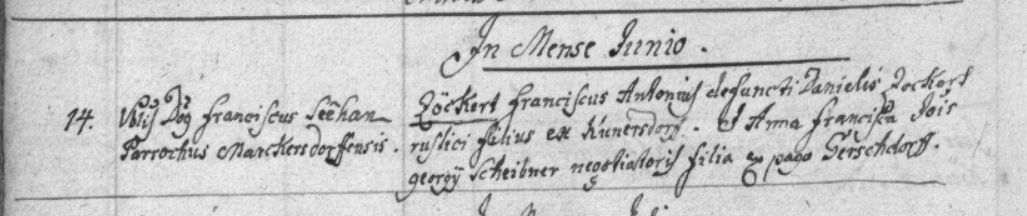 In Mense Junio.
14. Vllis Dōs Franciscus Seēhan
Parrochus Marckersdorffensis.
Zöckert Franciscus Antonius defuncti Danielis Zockert
rustici filius ex Kunersdorf. & Anna Francisca Jois
georgÿ Scheibner negotiatoris filia ex pago Gerschdorff.